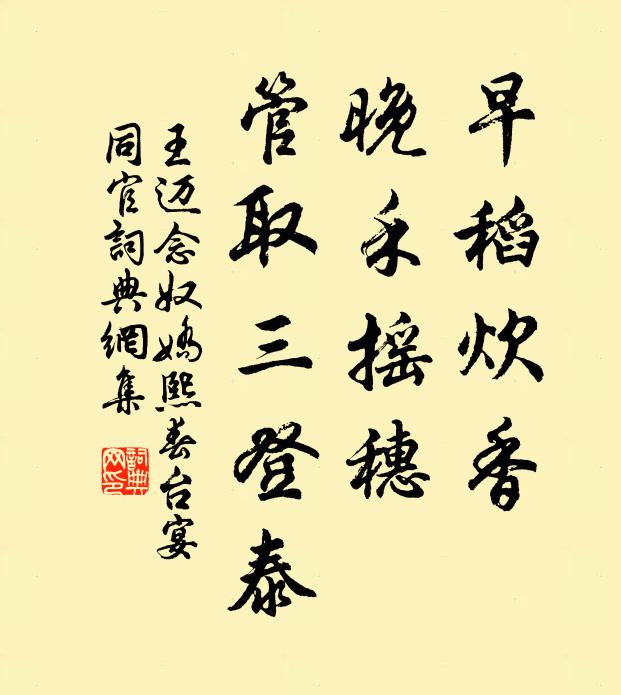 早稻炊香
晚禾摇穗
管取三登泰
王迈念奴嬌熙春台宴
同官詞典網集
詞典
网印